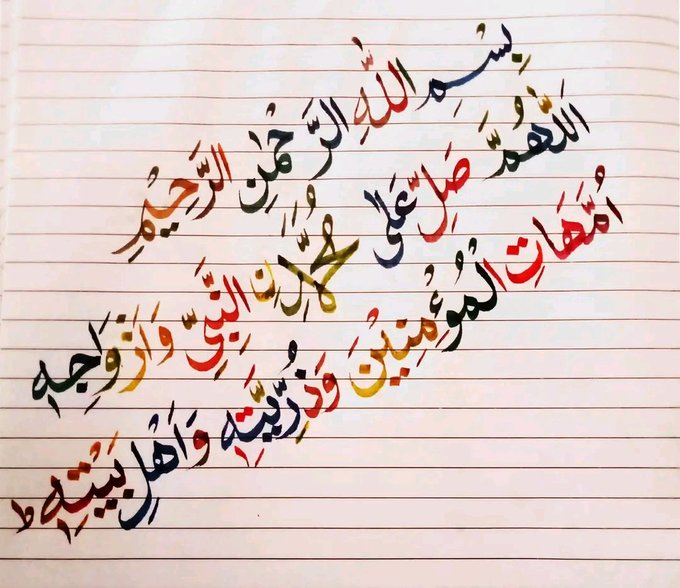 بِسْمِ اللّٰهِ الرَّحْمٰنِ الرَّحِيْمِ
اَللّٰهُمَّ صَلِّ عَلٰى مُحَمَّدِ نِ النَّبِيِّ وَاَزْوَاجِهٖ
اُمَّهَاتِ الْمُؤْمِنِيْنَ وَذُرِّيَّتِهٖ وَاَهْلِ بَيْتِهٖ ط